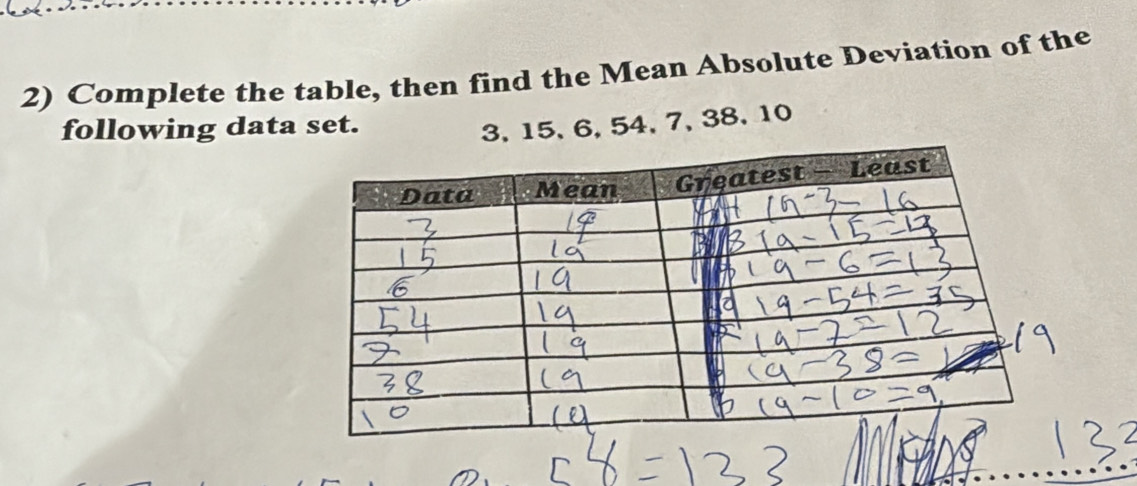 2) Complete the table, then find the Mean Absolute Deviation of the
following data set. 3, 15, 6, 54, 7, 38, 10
Data Mean Greatest - Least
3 19 19-3= 16
15 19 19-15=
6 19 19-6=13
54 19 19-54=35
7 19 19-7=12
38 19 19-38= 19
10 19 19-10=9
=133 132